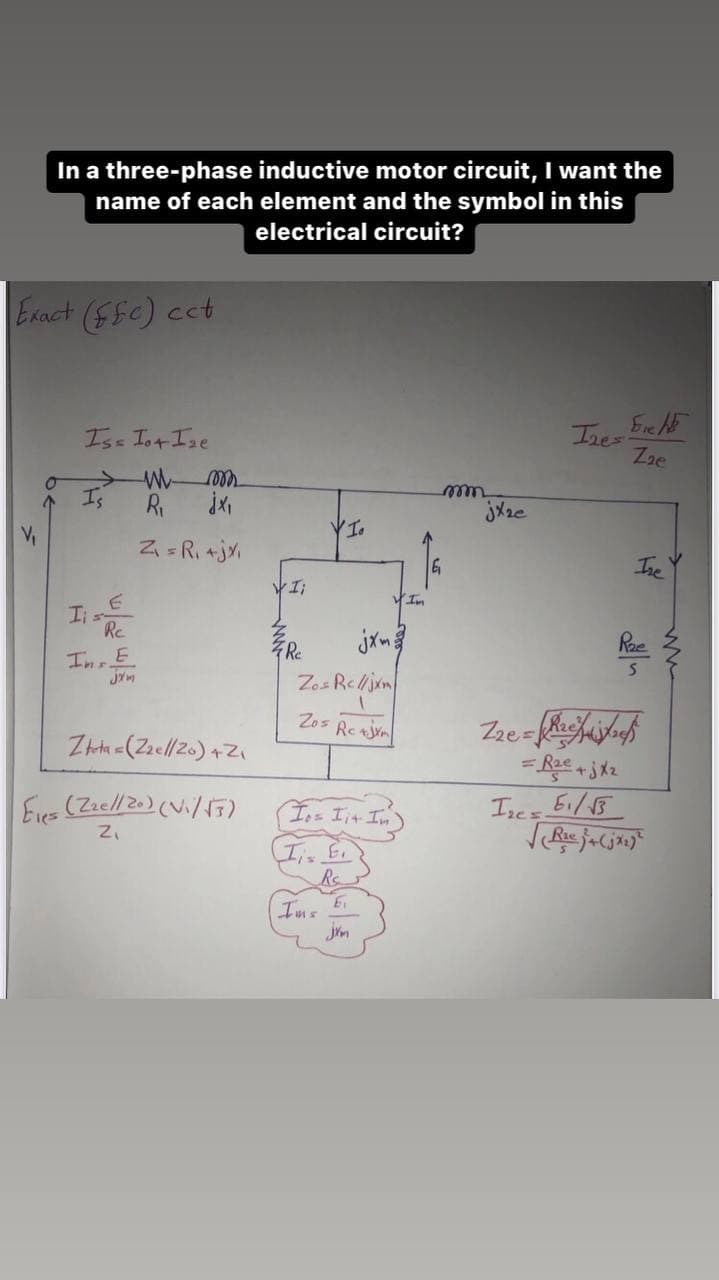 In a three-phase inductive motor circuit, I want the
name of each element and the symbol in this
electrical circuit?
Exact cct
Is = Io + I2e
I2e =
Z2e
Is
R1
jx1
jx2e
V1
Io
Z1 = R1 + jx1
E1
I2e
Ii
Im
Ii = E / Rc
Rc
jxm
R2e / s
Im = E / jxm
Zo = Rc // jxm
Zo = 1 / Rc + jxm
Z2e =
= R2e / s + jx2
Ztota = (Z2e // Zo) + Z1
E1e = (Z2e // Zo) (V1/√3) / Z1
Io = Ii + Im
I2e = E1/√3 / √(R2e/s)² + (jx2)²
Ii = E1 / Rc
Im = E1 / jxm